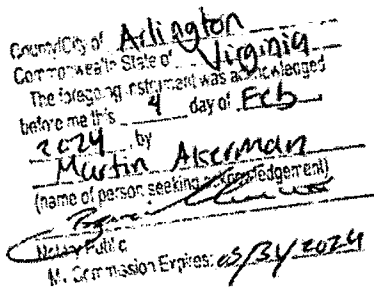 County/City of Arlington
Commonwealth State of Virginia
The foregoing instrument was acknowledged
before me this 4 day of Feb
2024 by
Martin Akerman
(name of person seeking acknowledgement)
Notary Public
My Commission Expires: 05/31/2024